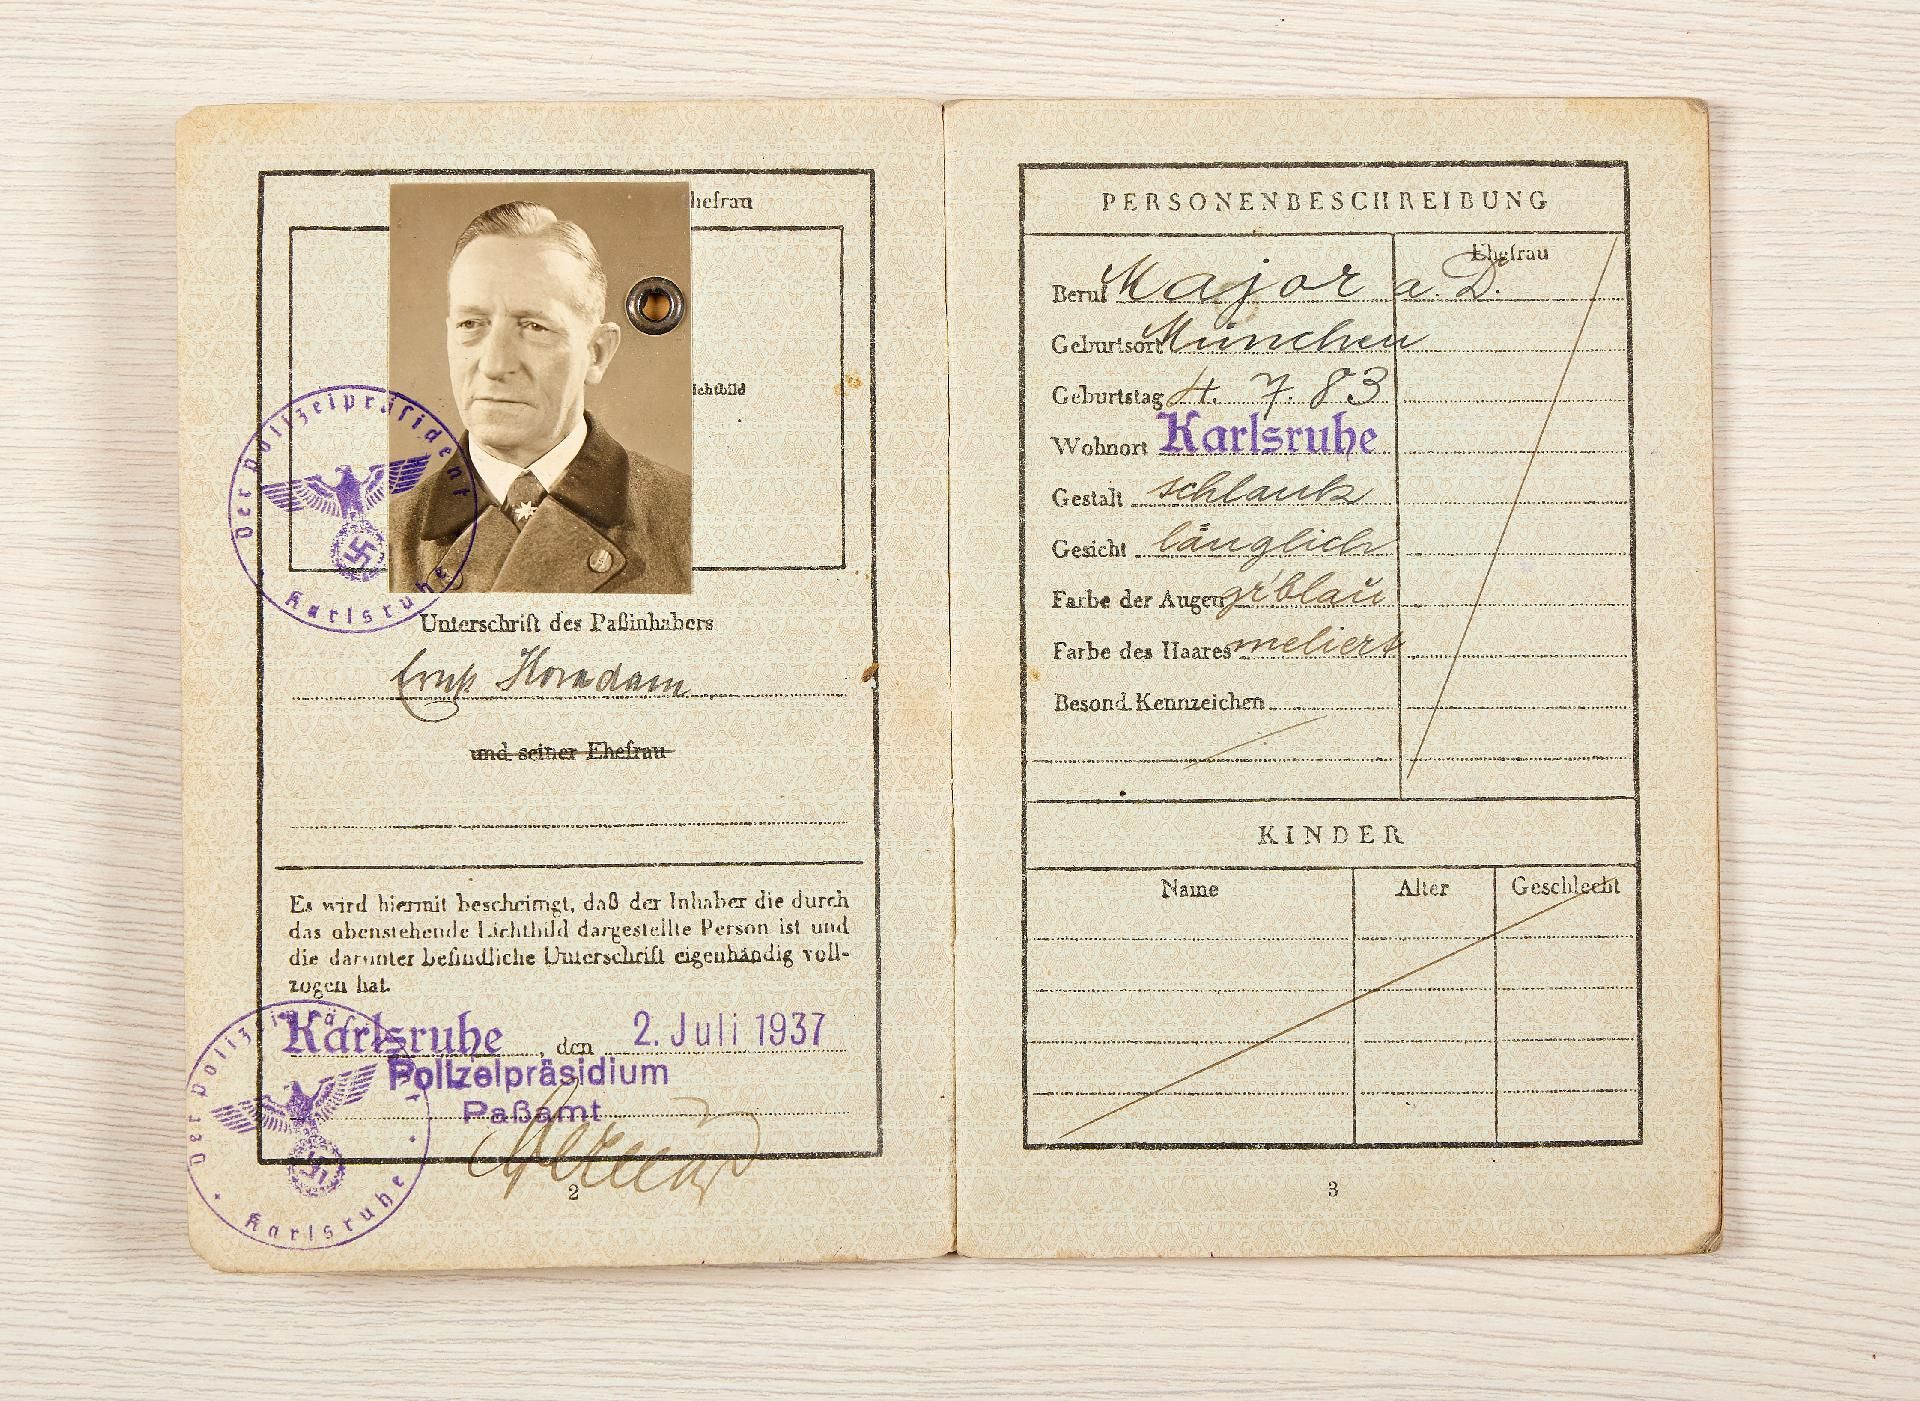 hefrau
ichtbild
Der Polizeipräsident
Karlsruhe
Unterschrift des Paßinhabers
Ernst Horadam
und seiner Ehefrau
Es wird hiermit bescheinigt, daß der Inhaber die durch
das obenstehende Lichtbild dargestellte Person ist und
die darunter befindliche Unterschrift eigenhändig voll-
zogen hat.
Karlsruhe, den 2. Juli 1937
Polizeipräsidium
Paßamt
Der Polizeipräsident
Karlsruhe
2
PERSONENBESCHREIBUNG
Ehefrau
Beruf Major a. D.
Geburtsort München
Geburtstag 4. 7. 83
Wohnort Karlsruhe
Gestalt schlank
Gesicht länglich
Farbe der Augen gr'blau
Farbe des Haares meliert
Besond. Kennzeichen
KINDER
Name Alter Geschlecht
3